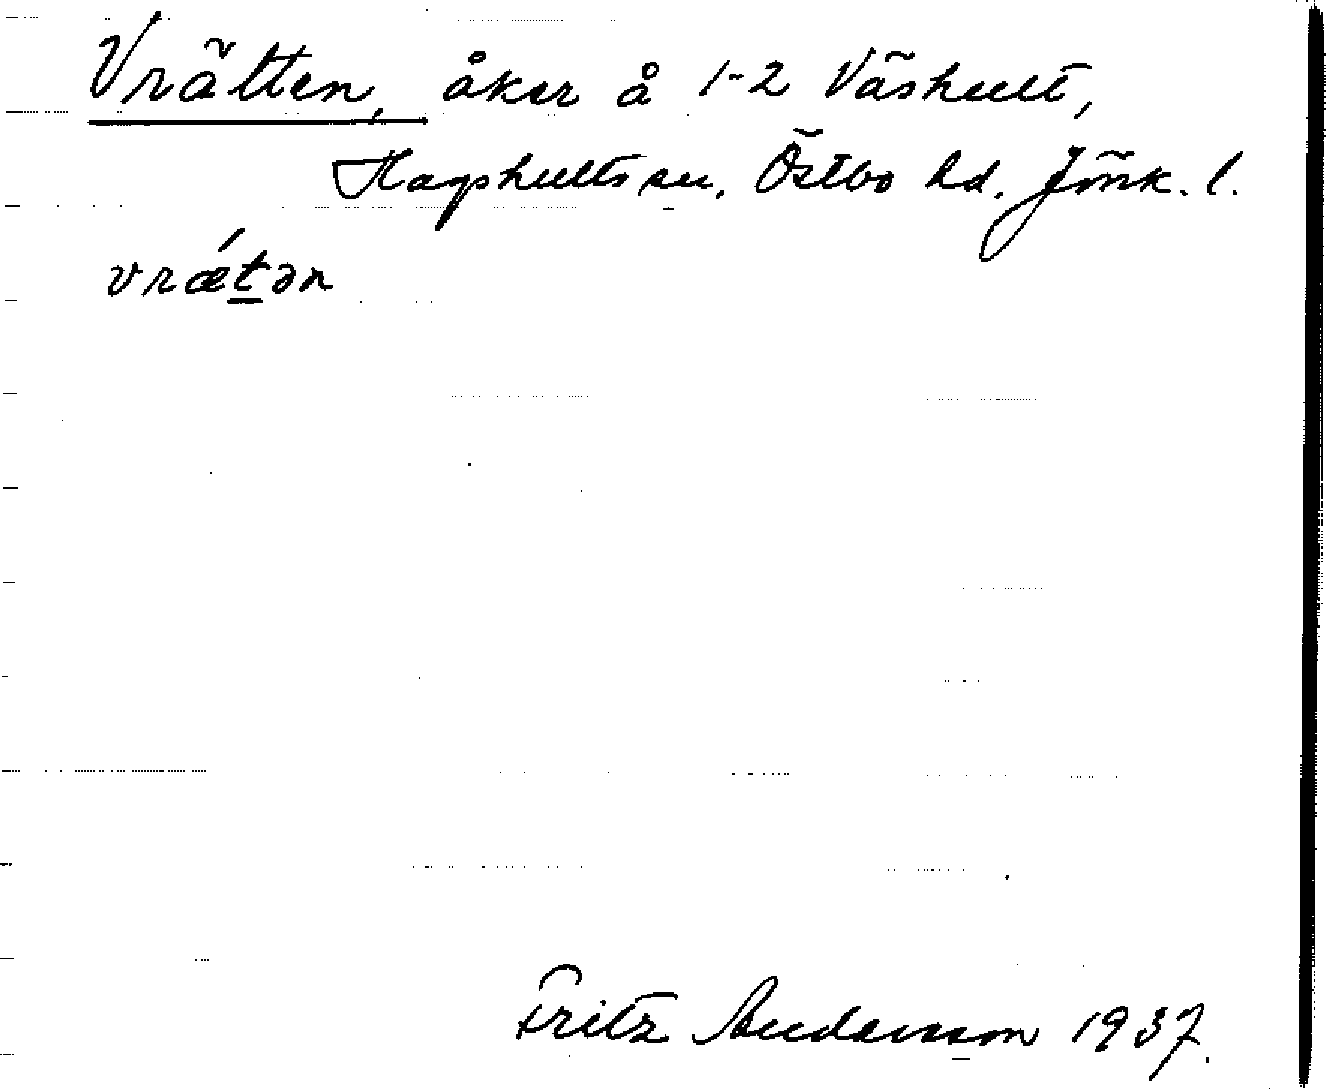 Vrätten, åker å 1-2 Väshult,
Hagshults sn, Östbo hd. Jönk. l.
vrǽt̲ən
Fritz Andersson 1937.